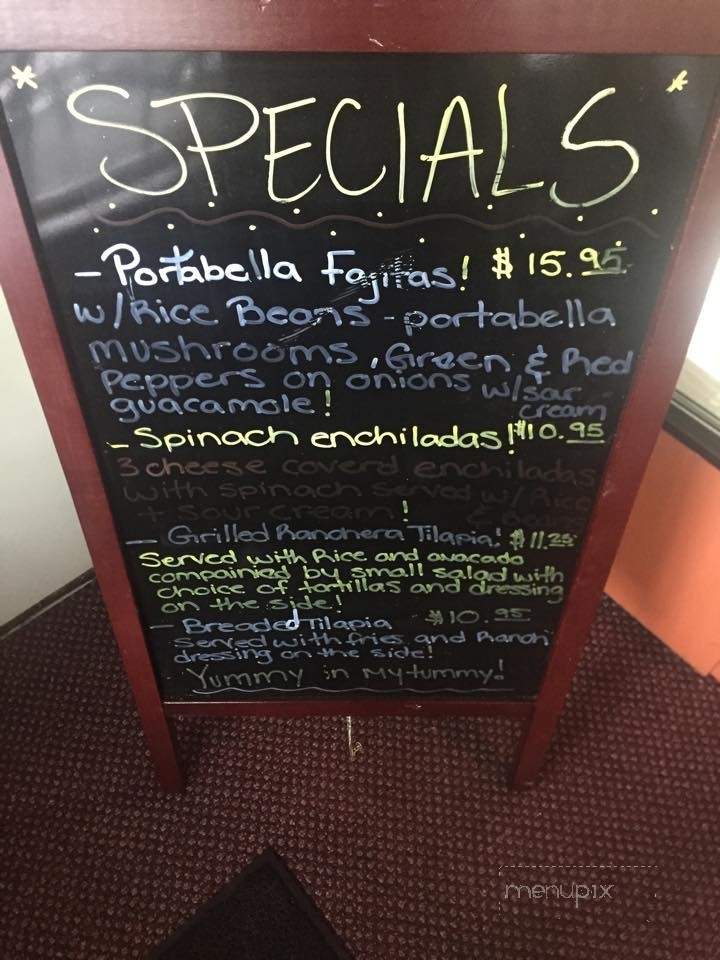 * SPECIALS *
- Portabella Fajitas! $15.95
w/Rice Beans - portabella
mushrooms, Green & Red
Peppers on onions w/sar
guacamole! cream
- Spinach enchiladas! $10.95
3 cheese coverd enchiladas
with spinach served w/ Rice
+ sour cream! &
- Grilled Ranchera Tilapia! $11.25
Served with Rice and avacado
compainied by small salad with
choice of tortillas and dressing
on the side!
- Breaded Tilapia $10.95
Served with fries and Ranch
dressing on the side!
Yummy in My tummy!
menupix